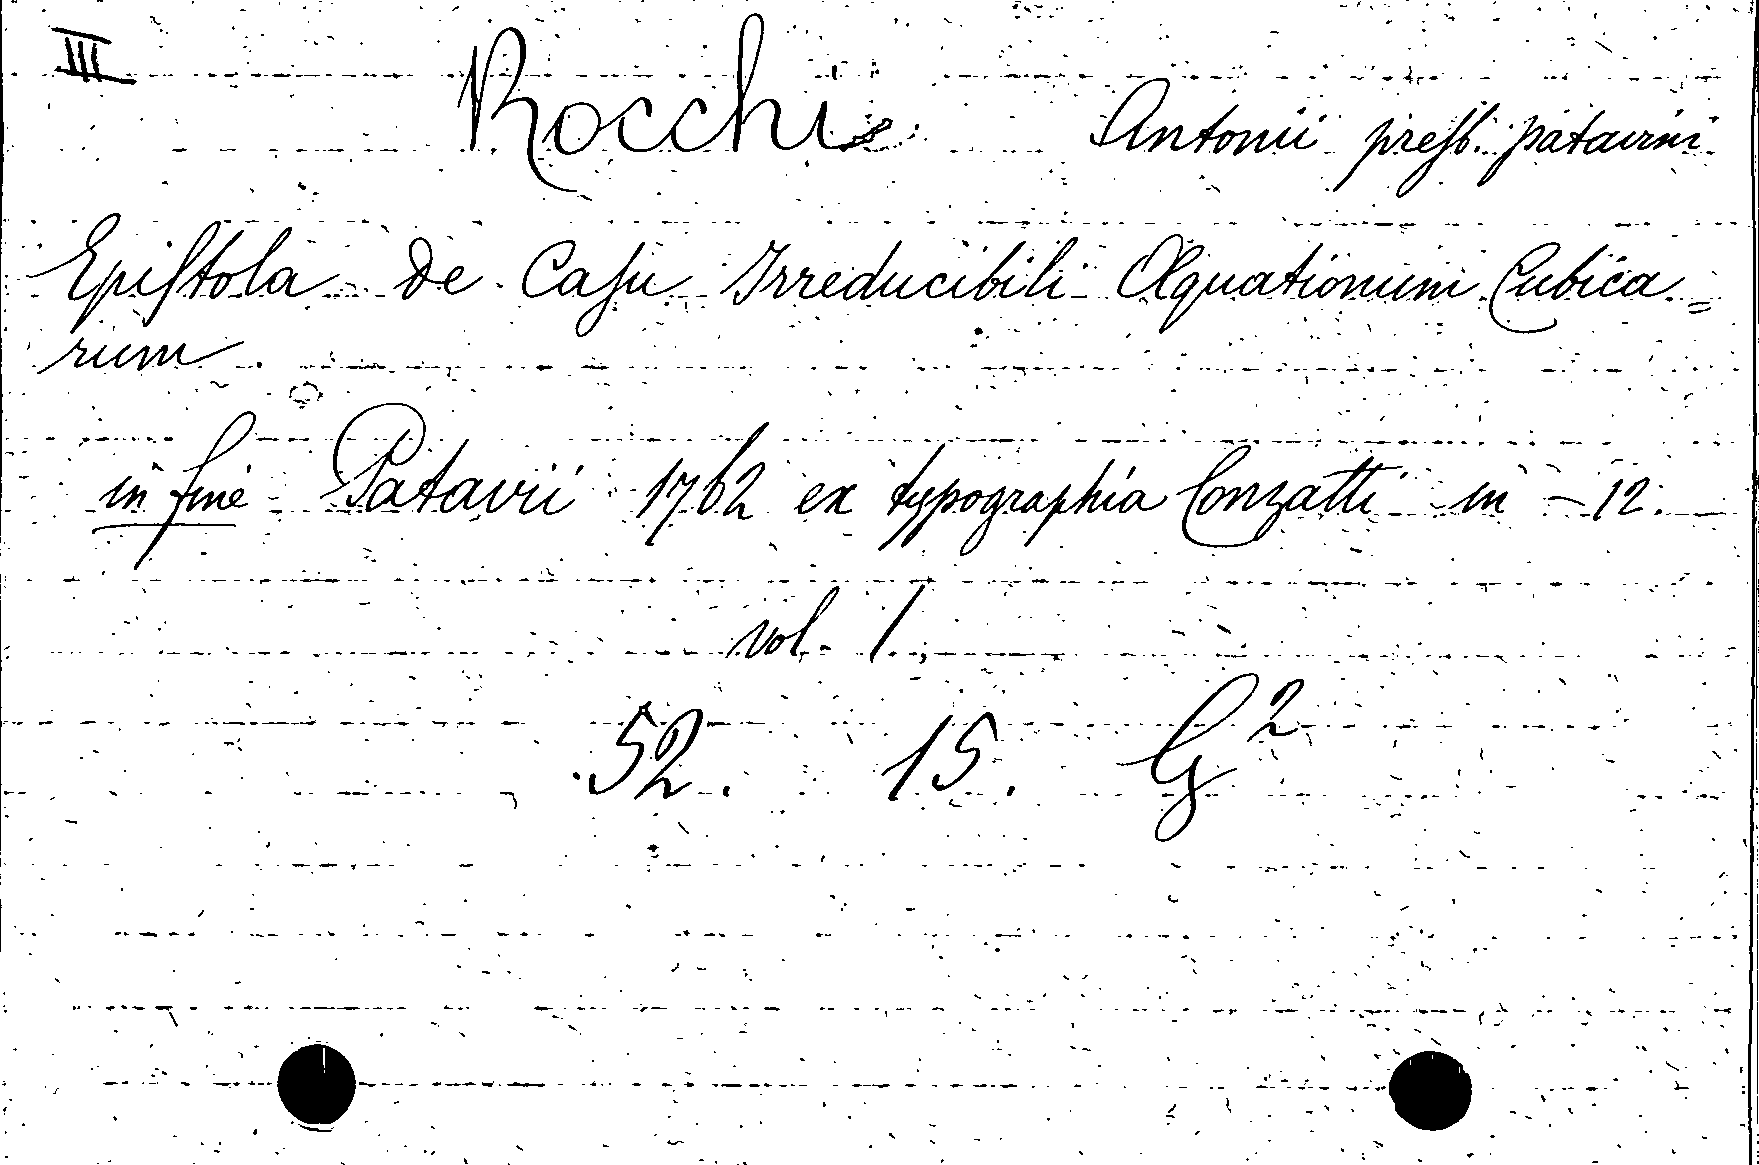 III Rocchi Antonii presb. patavini
Epiſtola De Caſu Irreducibili Æquationum Cubica=
rum
in fine Patavii 1762 ex typographia Conzatti in-12.
vol. 1,
52. 15. G²